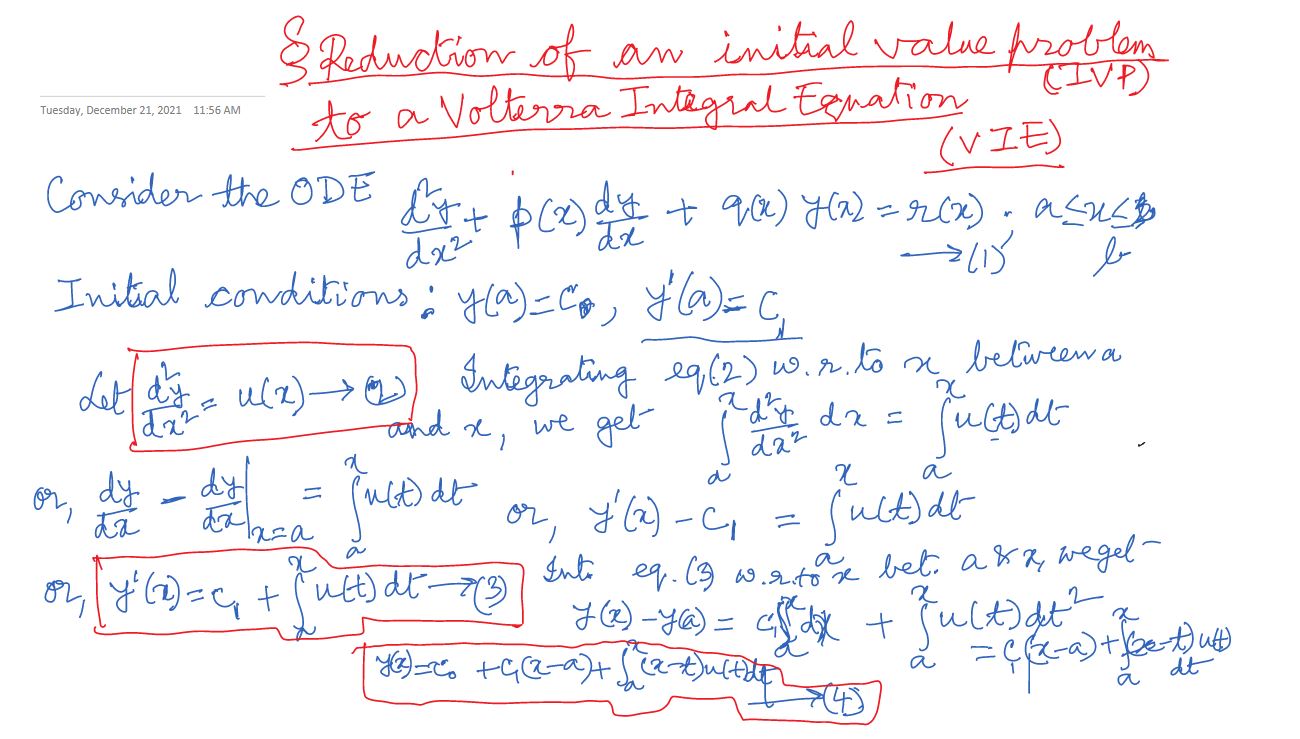 § Reduction of an initial value problem (IVP)
to a Volterra Integral Equation (VIE)
Tuesday, December 21, 2021 11:56 AM
Consider the ODE d²y/dx² + p(x) dy/dx + q(x) y(x) = r(x); a ≤ x ≤ b → (1)
Initial conditions: y(a) = C₀, y'(a) = C₁
Let d²y/dx² = u(x) → (2) Integrating eq(2) w.r.to x between a
and x, we get ∫ₐˣ d²y/dx² dx = ∫ₐˣ u(t) dt
or, dy/dx - dy/dx|ₓ₌ₐ = ∫ₐˣ u(t) dt or, y'(x) - C₁ = ∫ₐˣ u(t) dt
or, y'(x) = C₁ + ∫ₐˣ u(t) dt → (3) Int. eq.(3) w.r.to x bet. a & x, we get
y(x) - y(a) = C₁ ∫ₐˣ dx + ∫ₐˣ u(t) dt²
= C₁(x-a) + ∫ₐˣ (x-t) u(t) dt
y(x) = C₀ + C₁(x-a) + ∫ₐˣ (x-t) u(t) dt → (4)